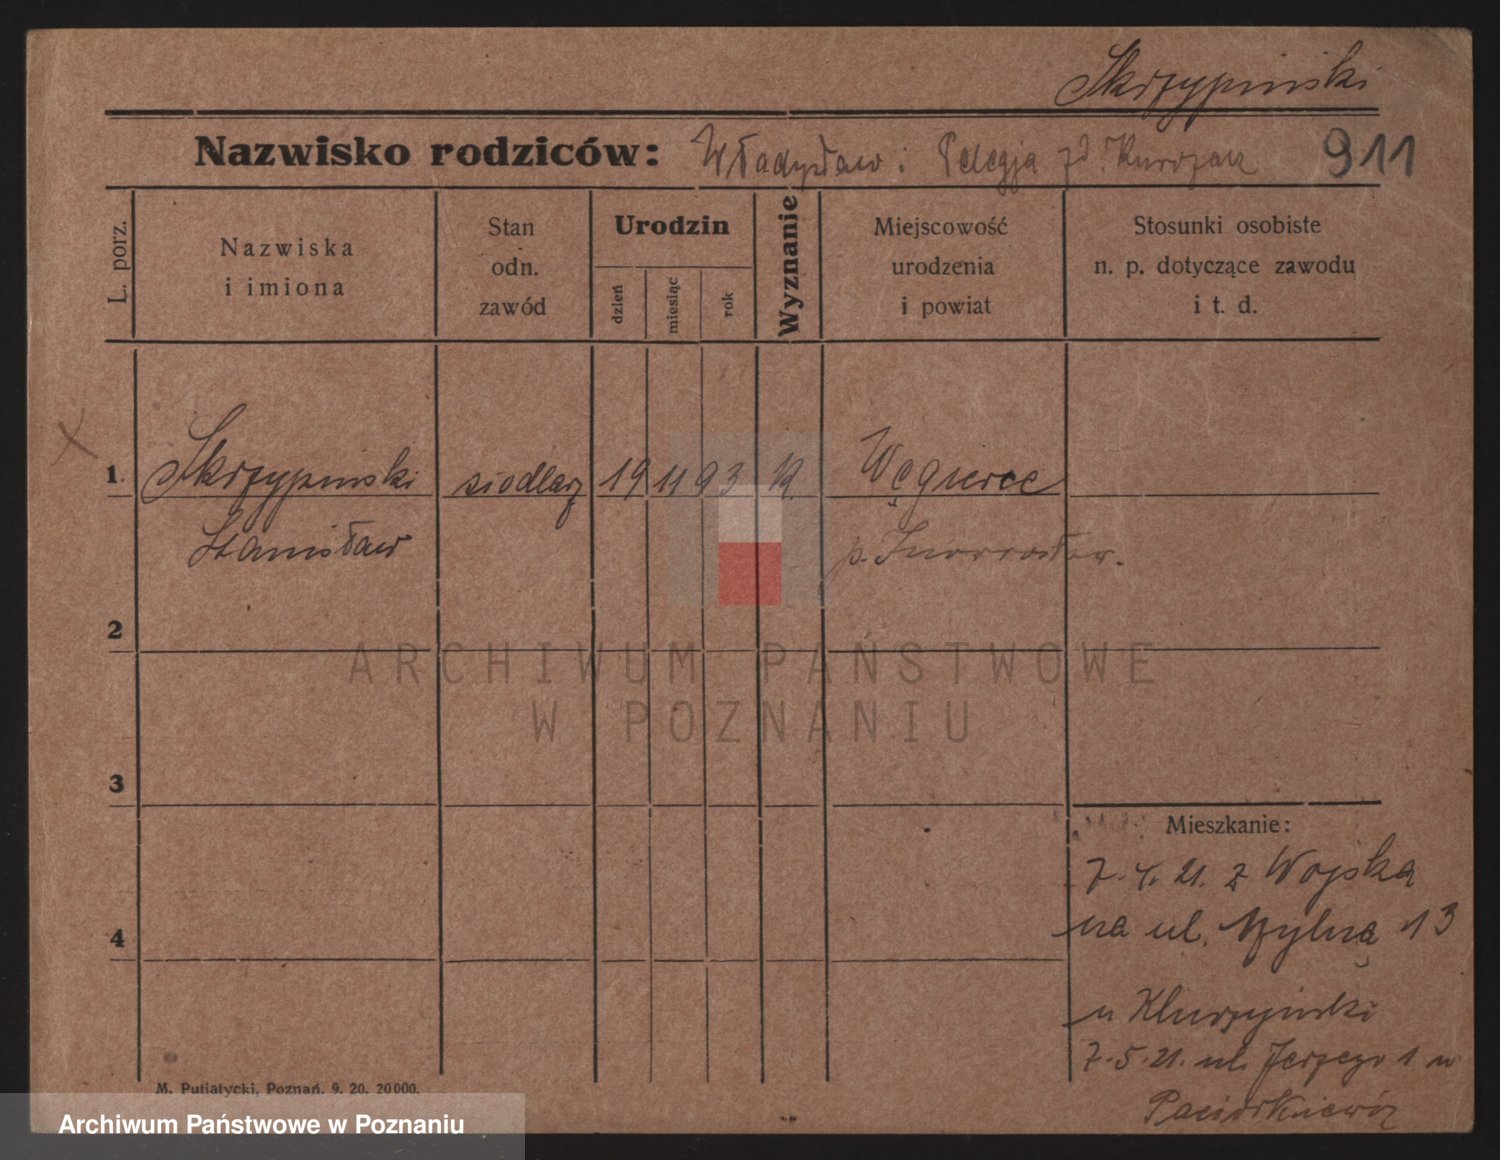 Skrzypiński
Nazwisko rodziców: Władysław i Pelegja zd.
911
L. porz.
Nazwiska
i imiona
Stan
odn.
zawód
Urodzin
dzień
miesiąc
rok
Wyznanie
Miejscowość
urodzenia
i powiat
Stosunki osobiste
n. p. dotyczące zawodu
i t. d.
1. Skrzypiński siodlarz 19 11 93 Węgierce
Stanisław p. Inowrocław.
2
3
4
Mieszkanie:
7.4.21. z Wojska
na ul. Mylną 13
u
7.5.21. ul. Jerzego 1 u
M. Putiatycki, Poznań. 9. 20. 20000.
ARCHIWUM PAŃSTWOWE
W POZNANIU
Archiwum Państwowe w Poznaniu